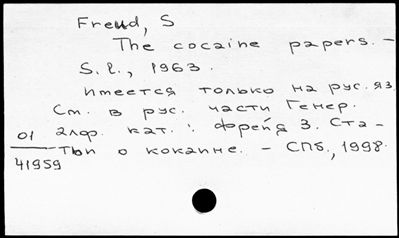 Freud, S
The cocaine papers. –
S.l., 1963.
имеется только на рус. яз.
См. в рус. части Генер.
алф. кат.: Фрейд З. Ста-
тьи о кокаине. – СПб., 1998.
01
41959